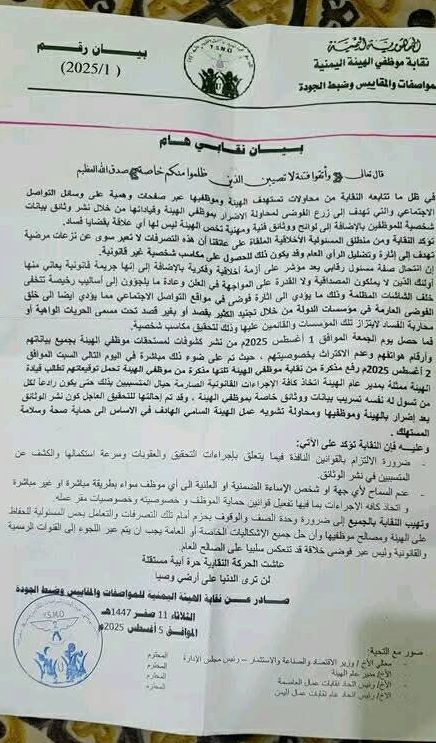 الجمهورية اليمنية
نقابة موظفي الهيئة اليمنية
للمواصفات والمقاييس وضبط الجودة
Y.S.M.O
بيان رقم
(2025/1)
بيان نقابي هام
قال تعالى واتقوا فتنة لا تصيبن الذين ظلموا منكم خاصة صدق الله العظيم
في ظل ما تتابعه النقابة من محاولات تستهدف الهيئة وموظفيها عبر صفحات وهمية على وسائل التواصل
الاجتماعي والتي تهدف إلى زرع الفوضى لمحاولة الاضرار بموظفي الهيئة وقياداتها من خلال نشر وثائق بيانات
شخصية للموظفين بالإضافة إلى لوائح ووثائق فنية ومهنية تخص الهيئة ليس لها أي علاقة بقضايا فساد.
تؤكد النقابة ومن منطلق المسئولية الأخلاقية الملقاة على عاتقنا أن هذه التصرفات لا تعبر سوى عن نزعات مرضية
تهدف إلى إثارة وتضليل الرأي العام وقد يكون ذلك للحصول على مكاسب شخصية غير قانونية.
إن انتحال صفة مسئول رقابي يعد مؤشر على أزمة اخلاقية وفكرية بالإضافة إلى إنها جريمة قانونية يعاني منها
أولئك الذين لا يملكون المصداقية ولا القدرة على المواجهة في العلن وعادة ما يلجؤون إلى أساليب رخيصة تتخفى
خلف الشاشات المظلمة وذلك ما يؤدي إلى اثارة فوضى في مواقع التواصل الاجتماعي مما يؤدي ايضا إلى خلق
الفوضى العارمة في مؤسسات الدولة من خلال تجنيد الكثير بقصد أو بغير قصد تحت مسمى الحريات الواهية أو
محاربة الفساد لابتزاز تلك المؤسسات والقائمين عليها وذلك لتحقيق مكاسب شخصية.
فما حصل يوم الجمعة الموافق 1 أغسطس 2025م من نشر كشوفات لمستحقات موظفي الهيئة بجميع بياناتهم
وأرقام هواتفهم وعدم الاكتراث بخصوصيتهم ، حيث تم على ضوء ذلك مباشرة في اليوم التالي السبت الموافق
2 أغسطس 2025م رفع مذكرة من نقابة موظفي الهيئة تلتها مذكرة من موظفي الهيئة تحمل توقيعاتهم تطالب قيادة
الهيئة ممثلة بمدير عام الهيئة اتخاذ كافة الإجراءات القانونية الصارمة حيال المتسببين بذلك حتى يكون رادعاً لكل
من تسول له نفسه تسريب بيانات ووثائق خاصة بموظفي الهيئة ، وقد تم إحالتها للتحقيق العاجل كون نشر الوثائق
يعد إضرار بالهيئة وموظفيها ومحاولة تشويه عمل الهيئة السامي الهادف في الاساس الى حماية صحة وسلامة
المستهلك.
وعليه فإن النقابة تؤكد على الآتي:
- ضرورة الالتزام بالقوانين النافذة فيما يتعلق بإجراءات التحقيق والعقوبات وسرعة استكمالها والكشف عن
المتسببين في نشر الوثائق.
- عدم السماح لأي جهة او شخص الإساءة الضمنية او العلنية الى أي موظف سواء بطريقة مباشرة او غير مباشرة
و اتخاذ كافة الإجراءات بما فيها تفعيل قوانين حماية الموظف و خصوصيته وخصوصيات مقر عمله.
وتهيب النقابة بالجميع إلى ضرورة وحدة الصف والوقوف بحزم أمام تلك التصرفات والتعامل بحس المسئولية للحفاظ
على الهيئة ومصالح موظفيها وأن حل جميع الإشكاليات الخاصة أو العامة يجب ان يتم عبر اللجوء إلى القوات الرسمية
والقانونية وليس عبر فوضى خلاقة قد تنعكس سلبيا على الصالح العام.
عاشت الحركة النقابية حرة أبية مستقلة
لن ترى الدنيا على أرضي وصيا
صادر عن نقابة الهيئة اليمنية للمواصفات والمقاييس وضبط الجودة
الثلاثاء 11 صفر 1447هـ
الموافق 5 أغسطس 2025م
Y.S.M.O
صور مع التحية:
- معالي الأخ / وزير الاقتصاد والصناعة والاستثمار – رئيس مجلس الإدارة المحترم
- الأخ/ مدير عام الهيئة المحترم
- الأخ/ رئيس اتحاد نقابات عمال العاصمة المحترم
- الأخ/ رئيس اتحاد عام نقابات عمال اليمن المحترم